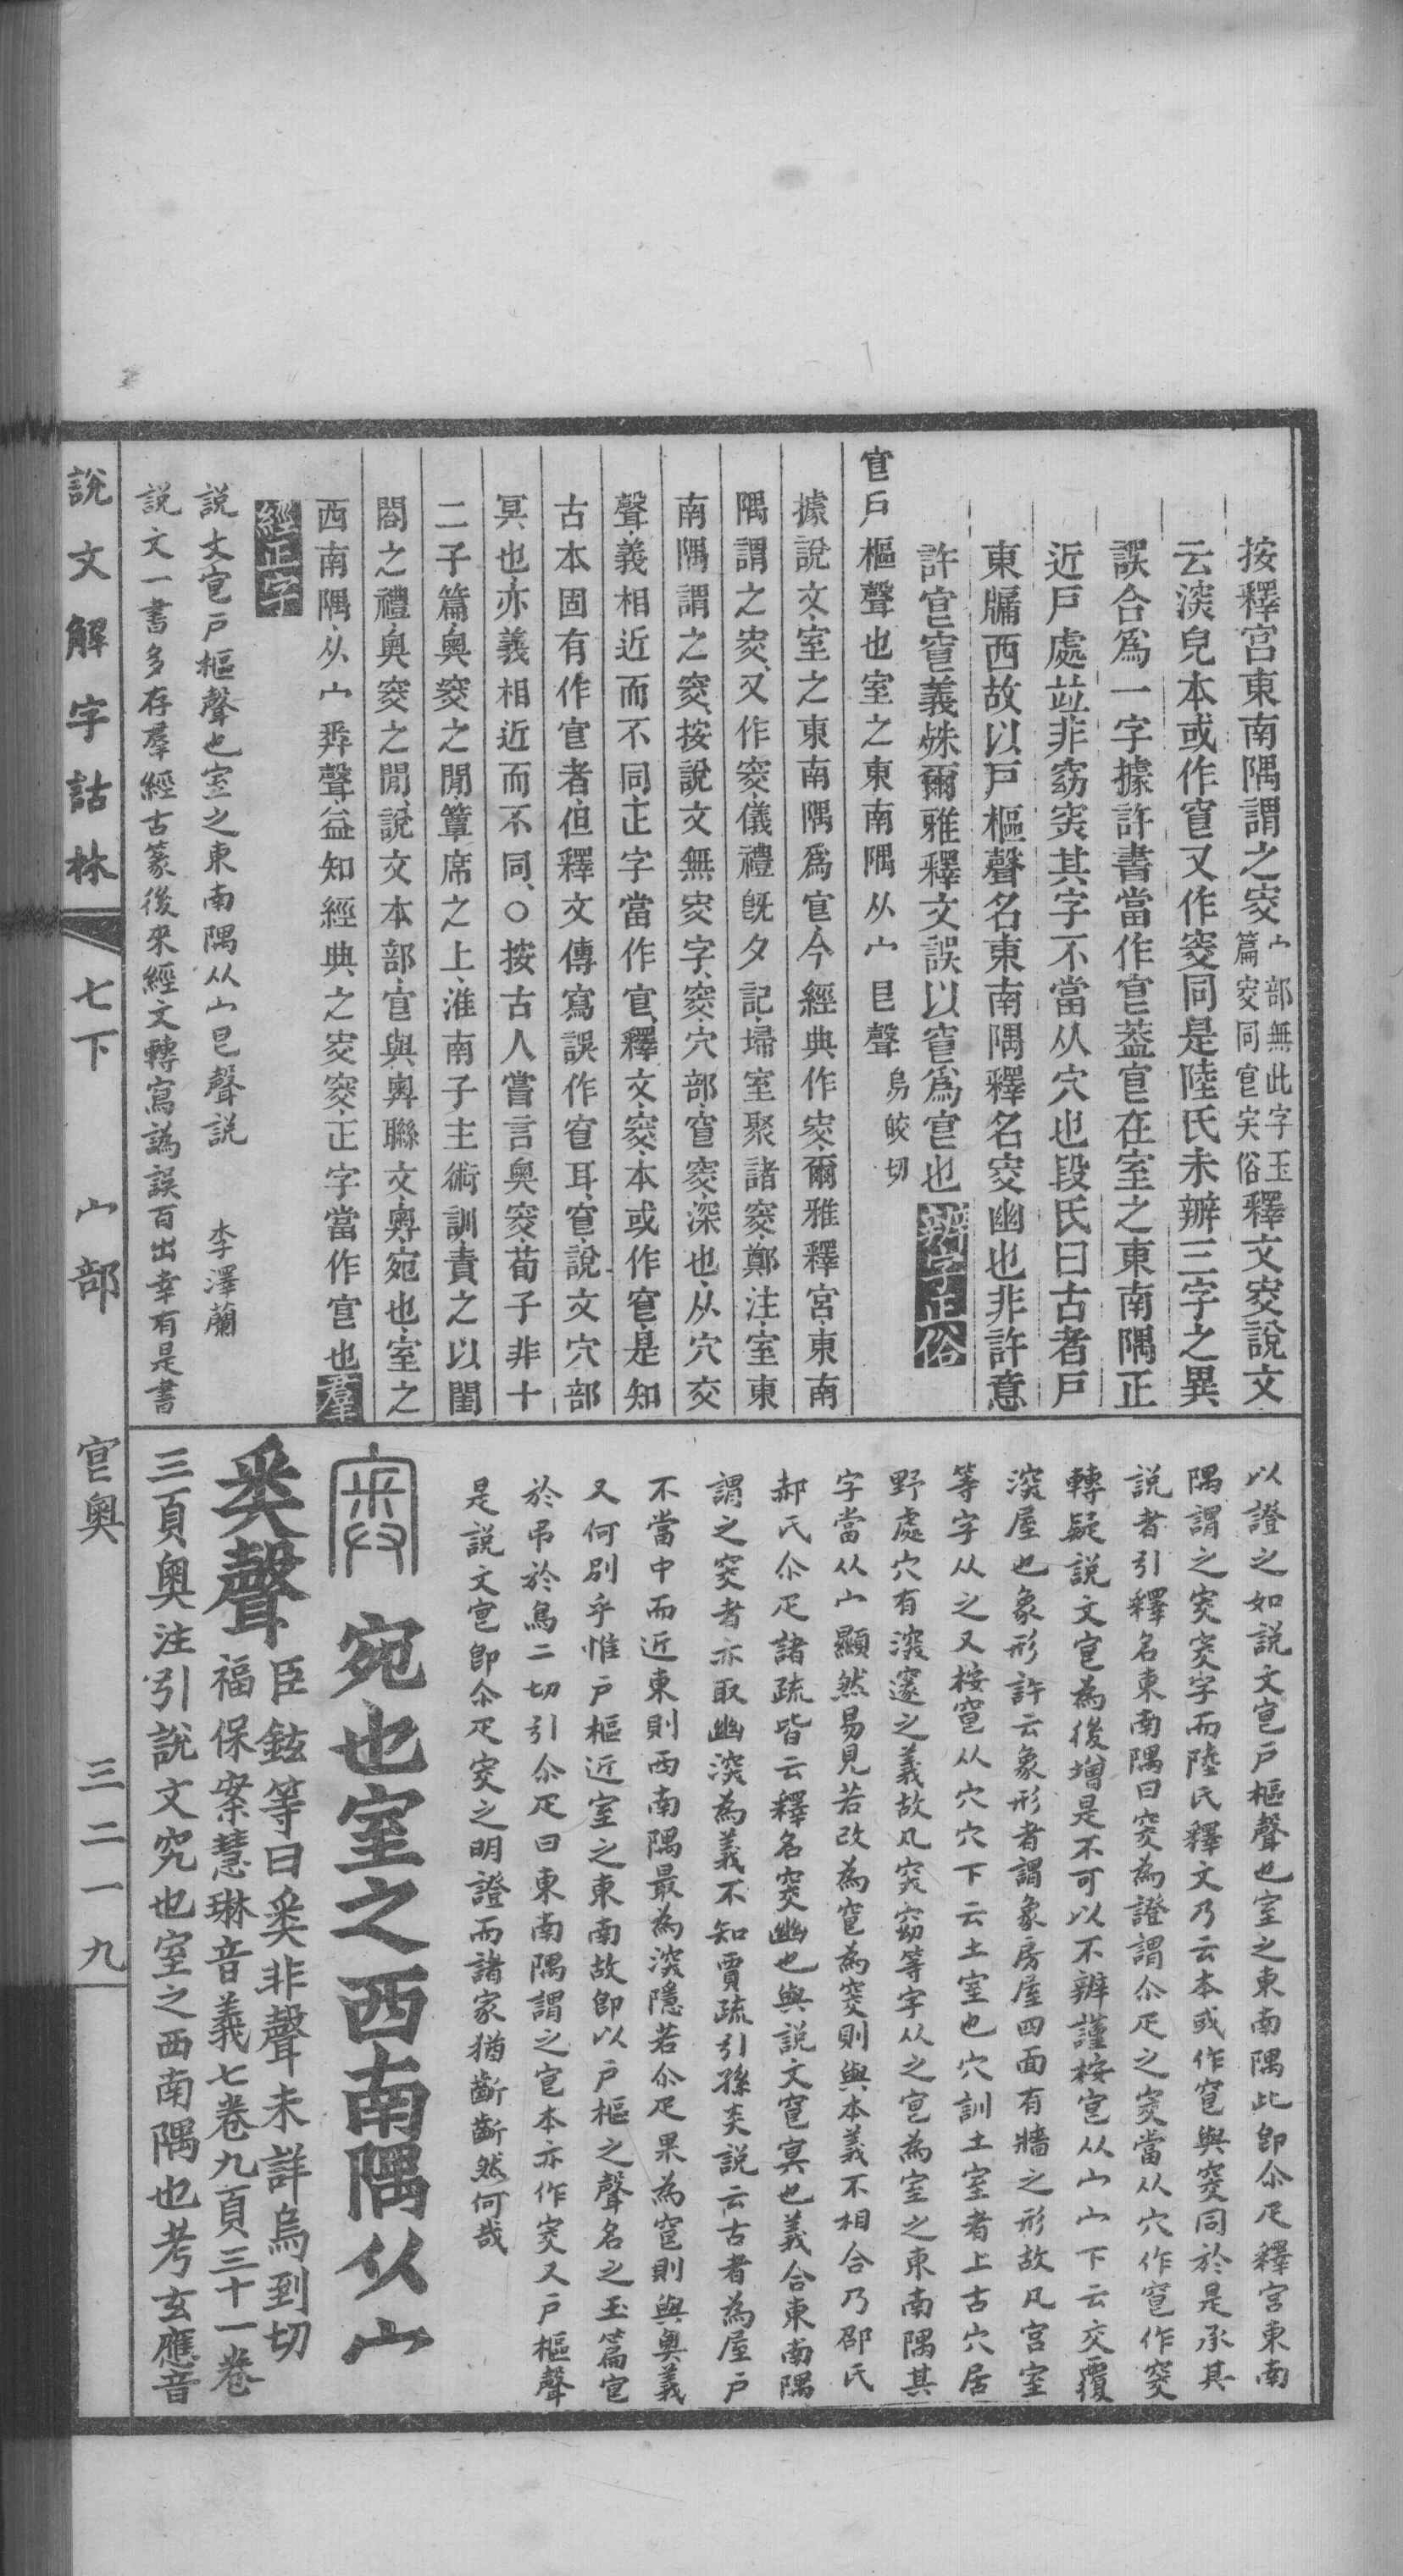 按釋宮東南隅謂之㝔宀部無此字玉篇㝔同宧宎俗釋文㝔說文
云深皃本或作窅又作窔同是陸氏未辦三字之異
誤合爲一字據許書當作宧葢宧在室之東南隅正
近戸處竝非窈突其字不當从穴也段氏曰古者戸
東牖西故以戸樞聲名東南隅釋名㝔幽也非許意
許宧窅義姝爾雅釋文誤以窅爲宧也辨字正俗
戸樞聲也室之東南隅从宀㫐聲烏皎切
據說文室之東南隅爲今經典作㝔爾雅釋宮東南
隅謂之㝔又作窔儀禮旣夕記埽室聚諸窔鄭注室東
南隅謂之窔按說文無㝔字窔穴部窅窔深也从穴交
聲義相近而不同正字當作釋文㝔本或作窅是知
古本固有作者但釋文傳寫誤作窅耳窅說文穴部
冥也亦義相近而不同○按古人嘗言奧窔荀子非十
二子篇奧窔之閒簟席之上淮南子主術訓責之以閨
閤之禮奧窔之閒說文本部與奧聯文奧宛也室之
西南隅从宀𢍏聲益知經典之㝔窔正字當作也羣
經正字
說文戸樞聲也室之東南隅从宀㫐聲說　李澤蘭
說文一書多存羣經古篆後來經文轉寫譌誤百出幸有是書
以證之如說文戸樞聲也室之東南隅此卽尒疋釋宮東南
隅謂之㝔㝔字而陸氏釋文乃云本或作窅與窔同於是承其
說者引釋名東南隅曰㝔爲證謂尒疋之㝔當从穴作窅作窔
轉疑說文爲後增是不可以不辨謹桉从宀宀下云交覆
深屋也象形許云象形者謂象房屋四面有牆之形故凡宮室
等字从之又桉窅从穴穴下云土室也穴訓土室者上古穴居
野處穴有深邃之義故凡突窈等字从之爲室之東南隅其
字當从宀顯然易見若改爲窅爲窔則與本義不相合乃邵氏
郝氏尒疋諸疏皆云釋名㝔幽也與說文窅冥也義合東南隅
謂之㝔者亦取幽深爲義不知賈疏引孫炎說云古者爲屋戸
不當中而近東則西南隅最爲深隱若尒疋果爲窅則與奧義
又何別乎惟戸樞近室之東南故卽以戸樞之聲名之玉篇
於弔於鳥二切引尒疋曰東南隅謂之本亦作㝔又戸樞聲
是說文卽尒疋㝔之明證而諸家猶齗齗然何哉
宛也室之西南隅从宀
𢍏聲臣鉉等曰𢍏非聲未詳烏到切
福保案慧琳音義七卷九頁三十一卷
三頁奧注引說文究也室之西南隅也考玄應音
說文解字詁林　七下　宀部　奧　三二一九